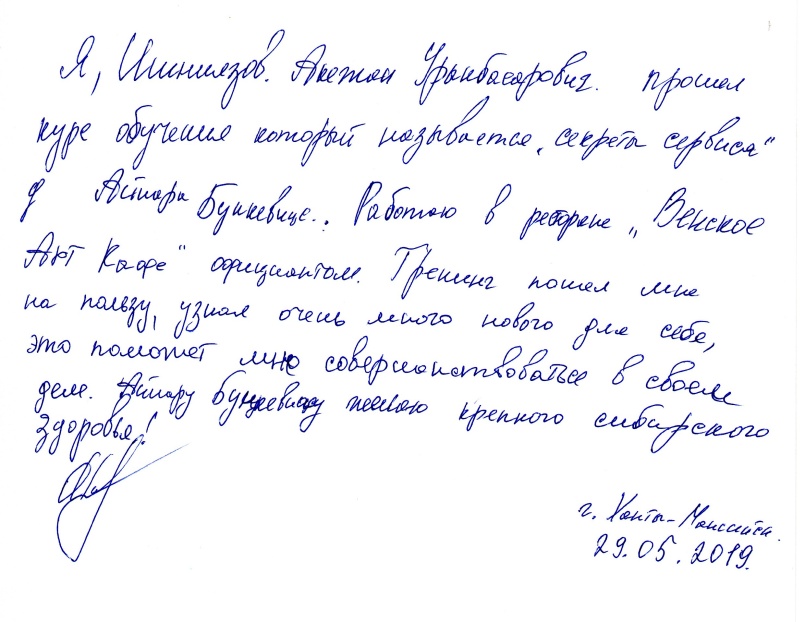 Я, Шиниязов. Акежан Урынбасарович. прошел
курс обучения который называется „секреты сервиса"
у Айтара Бункевице.. Работаю в ресторане „Венское
Арт Кафе" официантом. Тренинг пошел мне
на пользу, узнал очень много нового для себя,
это поможет мне совершенствоваться в своем
деле. Айтару желаю крепкого сибирского
здоровья!
г. Ханты-Мансийск.
29.05.2019.